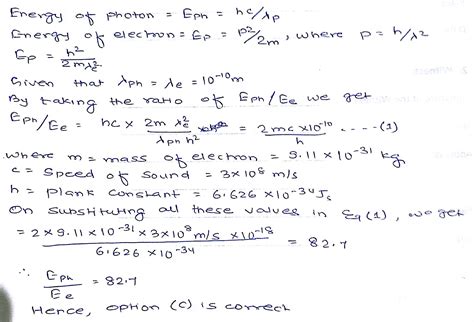 Energy of photon = Eph = hc/λp
Energy of electron = Ep = p²/2m, where p = h/λ2
Ep = h²/2mλe²
Given that λph = λe = 10⁻¹⁰m
By taking the ratio of Eph/Ee we get
Eph/Ee = hc × 2m λe²/λph h² = 2mc×10⁻¹⁰/h ....(1)
where m = mass of electron = 9.11 × 10⁻³¹ kg
c = speed of sound = 3×10⁸ m/s
h = plank constant = 6.626 ×10⁻³⁴ Js
On substituting all these values in Eq (1), we get
= 2×9.11×10⁻³¹×3×10⁸ m/s ×10⁻¹⁸/6.626 × 10⁻³⁴ = 82.7
∴ Eph/Ee = 82.7
Hence, option (c) is correct